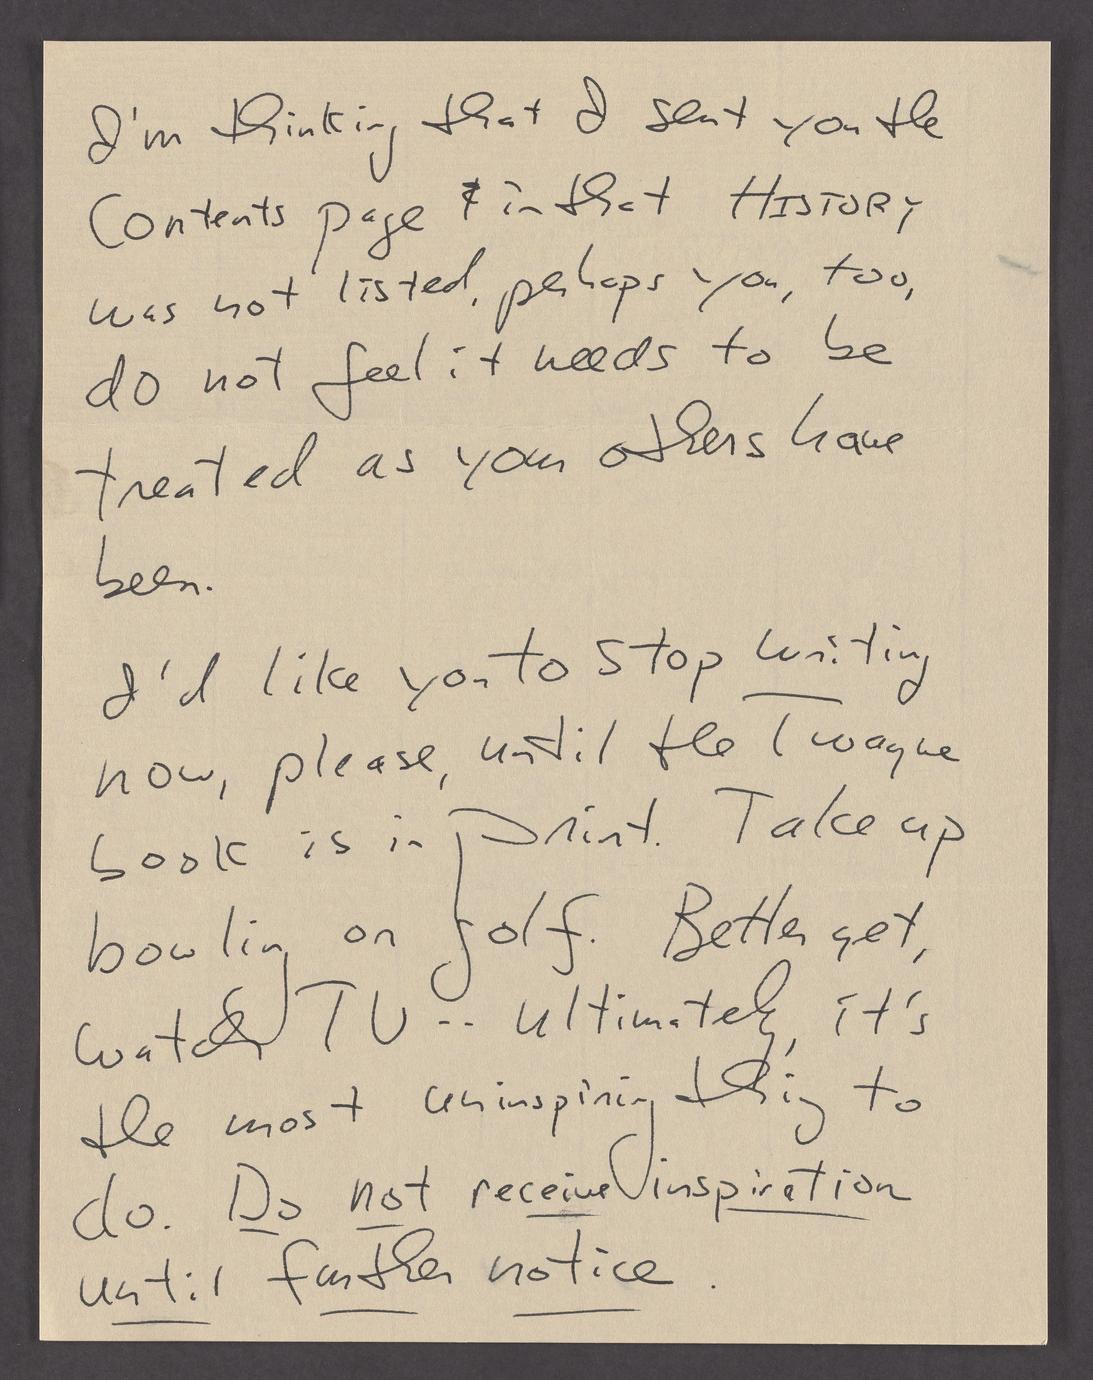 I'm thinking that I sent you the
Contents page & in that HISTORY
was not listed, perhaps you, too,
do not feel it needs to be
treated as your others have
been.
I'd like you to stop writing
now, please, until the Twayne
book is in print. Take up
bowling or golf. Better yet,
watch TV -- ultimately, it's
the most uninspiring thing to
do. Do not receive inspiration
until further notice.